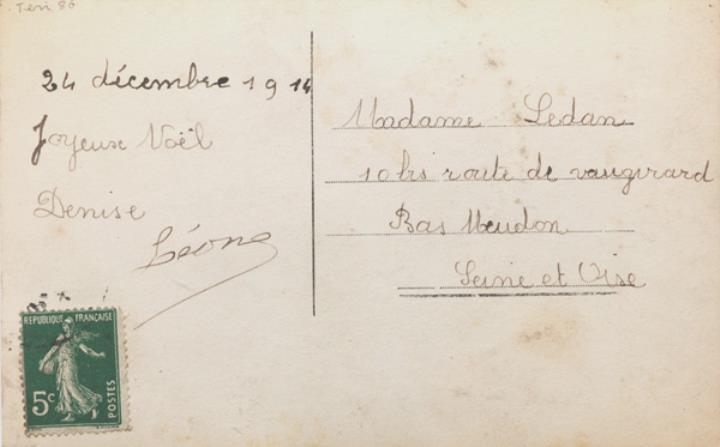 Teri 86
24 décembre 1914
Joyeuse Noël
Denise
Léone
Madame Ledan
10 bis route de vaugirard
Bas Meudon
Seine et Oise
REPUBLIQUE FRANÇAISE
5c
POSTES